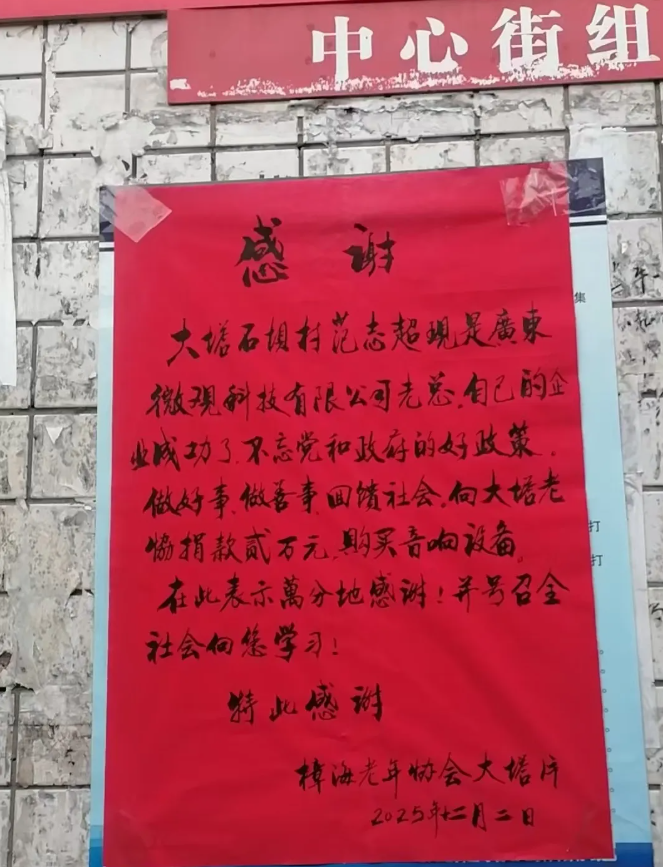 中心街组
感谢
大塔石坝村范志超现是廣東
微观科技有限公司老总。自己的企
业成功了.不忘党和政府的好政策。
做好事、做善事、回馈社会。向大塔老
协捐款贰万元.购买音响设备。
在此表示萬分地感谢！并号召全
社会向您学习！
特此感谢
樟海老年协会大塔片
2025年十二月二日
集
打
打